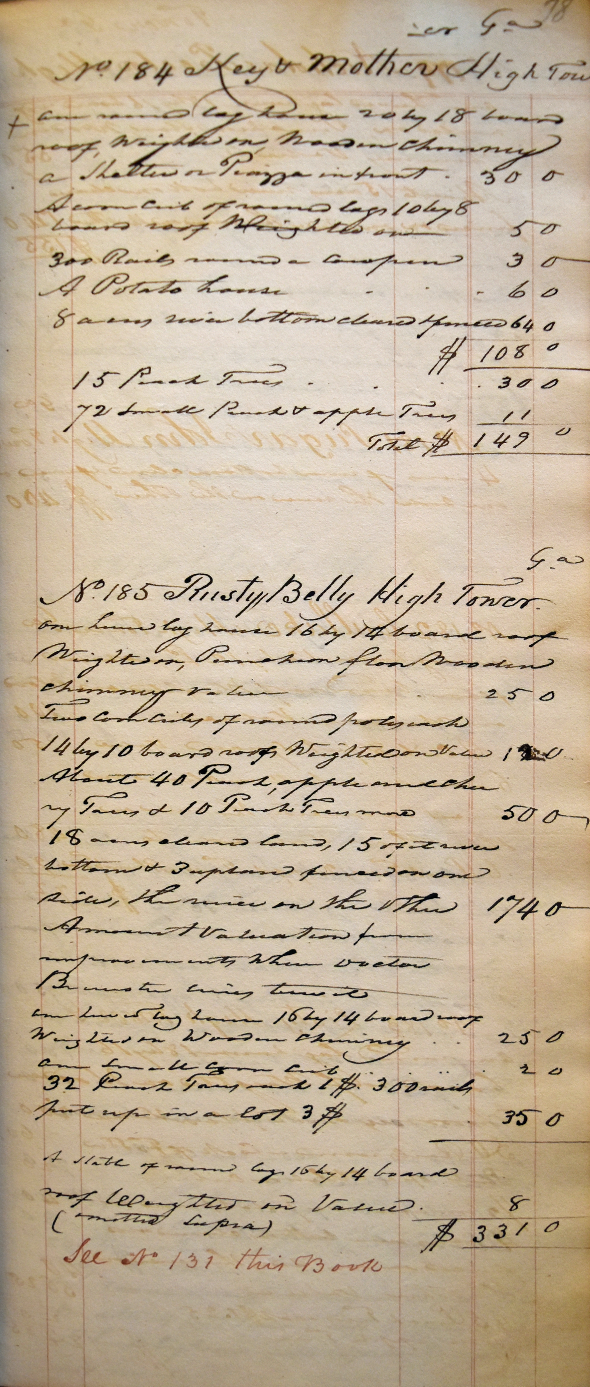 78
Ga
No 184 Key & Mother High Tow
+ one round log house 20 by 18 board
roof, Weighted on, Wooden Chimney
a Shelter or Piazza in front . 30 0
A corn Crib of round logs 10 by 8
board roof Weighted on 5 0
300 Rails round a Cowpen 3 0
A Potato house . . . 6 0
8 acres river bottom cleared & fenced 64 0
$ 108 0
15 Peach Trees . . . . 30 0
72 Small Peach & apple Trees 11
Total $ 149 0
Ga
No. 185 Rusty Belly High Tower.
one hewed log house 16 by 14 board roof
Weighted on, Puncheon floor Wooden
chimney value . 25 0
Two Corn Cribs of round poles each
14 by 10 board roofs Weighted on Value
About 40 Peach, apple and Cher
ry Trees & 10 Peach Trees more 50 0
18 acres cleared land, 15 of it river
bottom & 3 upland fenced on one
side, the river on the other 174 0
Amount Valuation for
improvements Where Doctor
lives
one hewed log house 16 by 14 board roof
Weighted on Wooden Chimney . . 25 0
one Small Corn Crib . . . . . 2 0
32 Peach Trees each 1$. 300 rails
put up in a lot 3$ 35 0
A Stable of round logs 16 by 14 board
roof Weighted on Value . 8
(omitted Supra) $ 331 0
See No 131 this Book